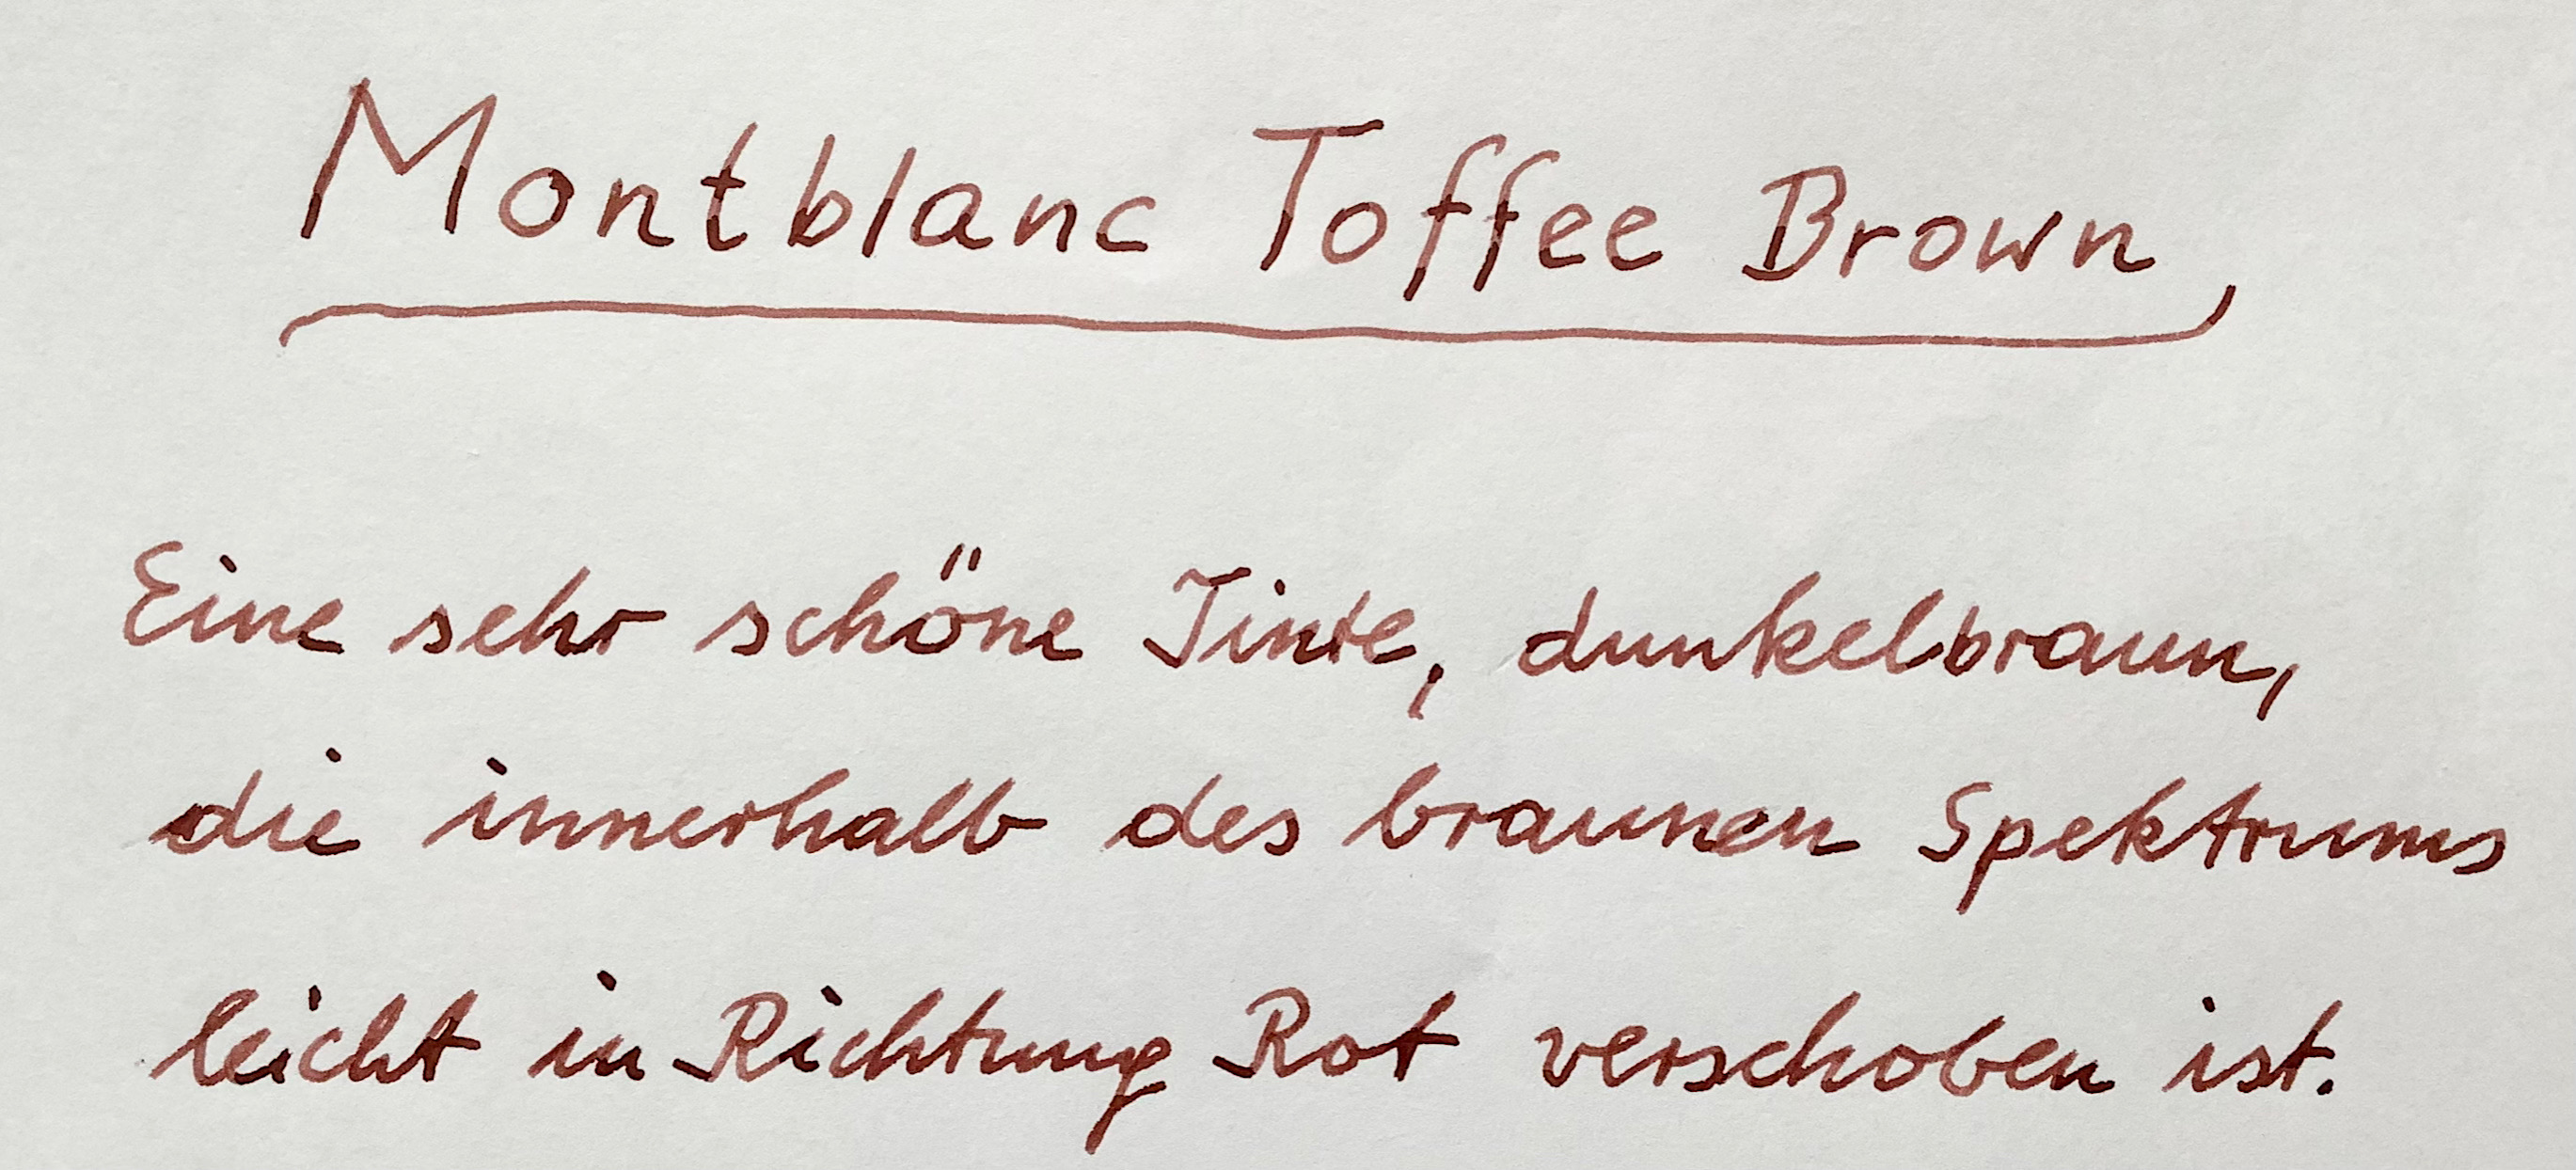 Montblanc Toffee Brown
Eine sehr schöne Tinte, dunkelbraun,
die innerhalb des braunen Spektrums
leicht in Richtung Rot verschoben ist.